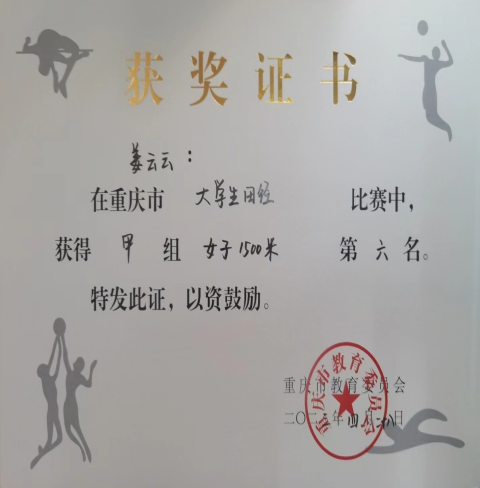 获奖证书
姜云云：
在重庆市 大学生田径 比赛中，
获得 甲 组 女子1500米 第 六 名。
特发此证，以资鼓励。
重庆市教育委员会
二〇二 年 四 月 日
重庆市教育委员会